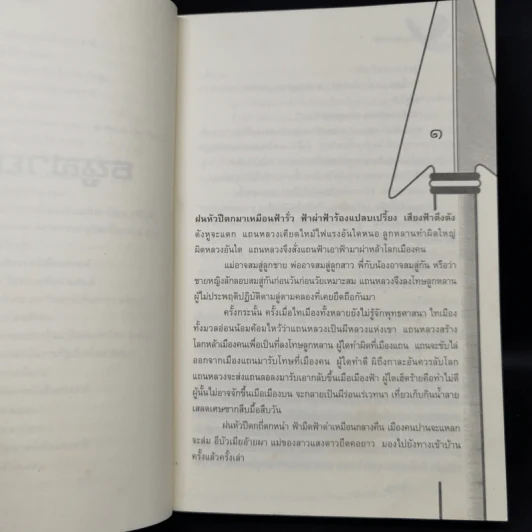 ๑
ฝนหัวปีตกมาเหมือนฟ้ารั่ว ฟ้าผ่าฟ้าร้องแปลบเปรี้ยง เสียงฟ้าดึงดัง
ดังหูจะแตก แถนหลวงเคียดใหม้ไฟแรงอันใดหนอ ลูกหลานทำผิดใหญ่
ผิดหลวงอันใด แถนหลวงจึงสั่งแถนฟ้าเอาฟ้ามาผ่าหล้าโลกเมืองคน
แม่อาจสมสู่ลูกชาย พ่ออาจสมสู่ลูกสาว พี่กับน้องอาจสมสู่กัน หรือว่า
ชายหญิงลักลอบสมสู่กันก่อนวันก่อนวัยเหมาะสม แถนหลวงจึงลงโทษลูกหลาน
ผู้ไม่ประพฤติปฏิบัติตามลู่ตามคลองที่เคยยึดถือกันมา
ครั้งกระนั้น ครั้งเมื่อไทเมืองทั้งหลายยังไม่รู้จักพุทธศาสนา ไทเมือง
ทั้งมวลอ่อนน้อมค้อมไหว้ว่าแถนหลวงเป็นผีหลวงแห่งเขา แถนหลวงสร้าง
โลกหล้าเมืองคนเพื่อเป็นที่ลงโทษลูกหลาน ผู้ใดทำผิดที่เมืองแถน แถนจะขับไล่
ออกจากเมืองแถนมารับโทษที่เมืองคน ผู้ใดทำดี มิถึงกาละอันควรลับโลก
แถนหลวงจะส่งแถนลอลงมารับเอากลับขึ้นเมื่อเมืองฟ้า ผู้ใดเฮ็ดร้ายคือทำไม่ดี
ผู้นั้นไม่อาจจักขึ้นเมื่อเมืองบน จะกลายเป็นผีร่อนเร่เวทนา เที่ยวเก็บกินน้ำลาย
เสลดเศษซากสิบมื้อสิบวัน
ฝนหัวปีตกถี่ตกหนำ ฟ้ามืดฟ้าดำเหมือนกลางคืน เมืองคนปานจะแหลก
จะล่ม อีบัวเมียอ้ายผา แม่ของสาวแสงดาวยืดคอยาว มองไปยังทางเข้าบ้าน
ครั้งแล้วครั้งเล่า